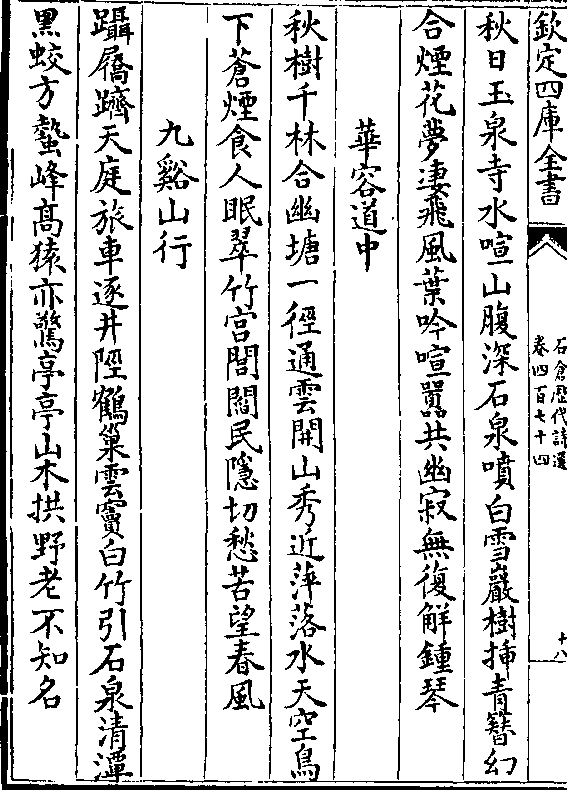 欽定四庫全書
石倉歷代詩選
卷四百七十四
十八
秋日玉泉寺水喧山腹深石泉噴白雪巖樹揷青簪幻
合煙花夢凄飛風葉吟喧囂共幽寂無復解鍾琴
華容道中
秋樹千林合幽塘一徑通雲開山秀近萍落水天空鳥
下蒼煙食人眠翠竹宫閭閻民隱切愁苦望春風
九谿山行
躡屩躋天庭旅車逐井陘鶴巢雲竇白竹引石泉清潭
黒蛟方蟄峰髙猿亦驚亭亭山木拱野老不知名